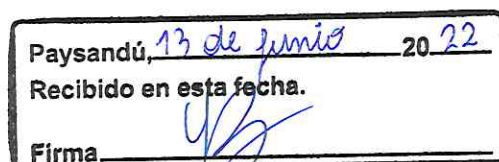 Paysandú, 13 de junio 2022
Recibido en esta fecha.
Firma